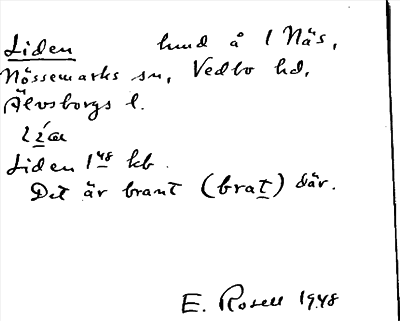 Liden hmd å 1 Näs,
Nössemarks sn, Vedbo hd,
Älvsborgs l.
Liden 1⁴⁸ kb.
Det är brant (brat) där.
E. Rosell 1948